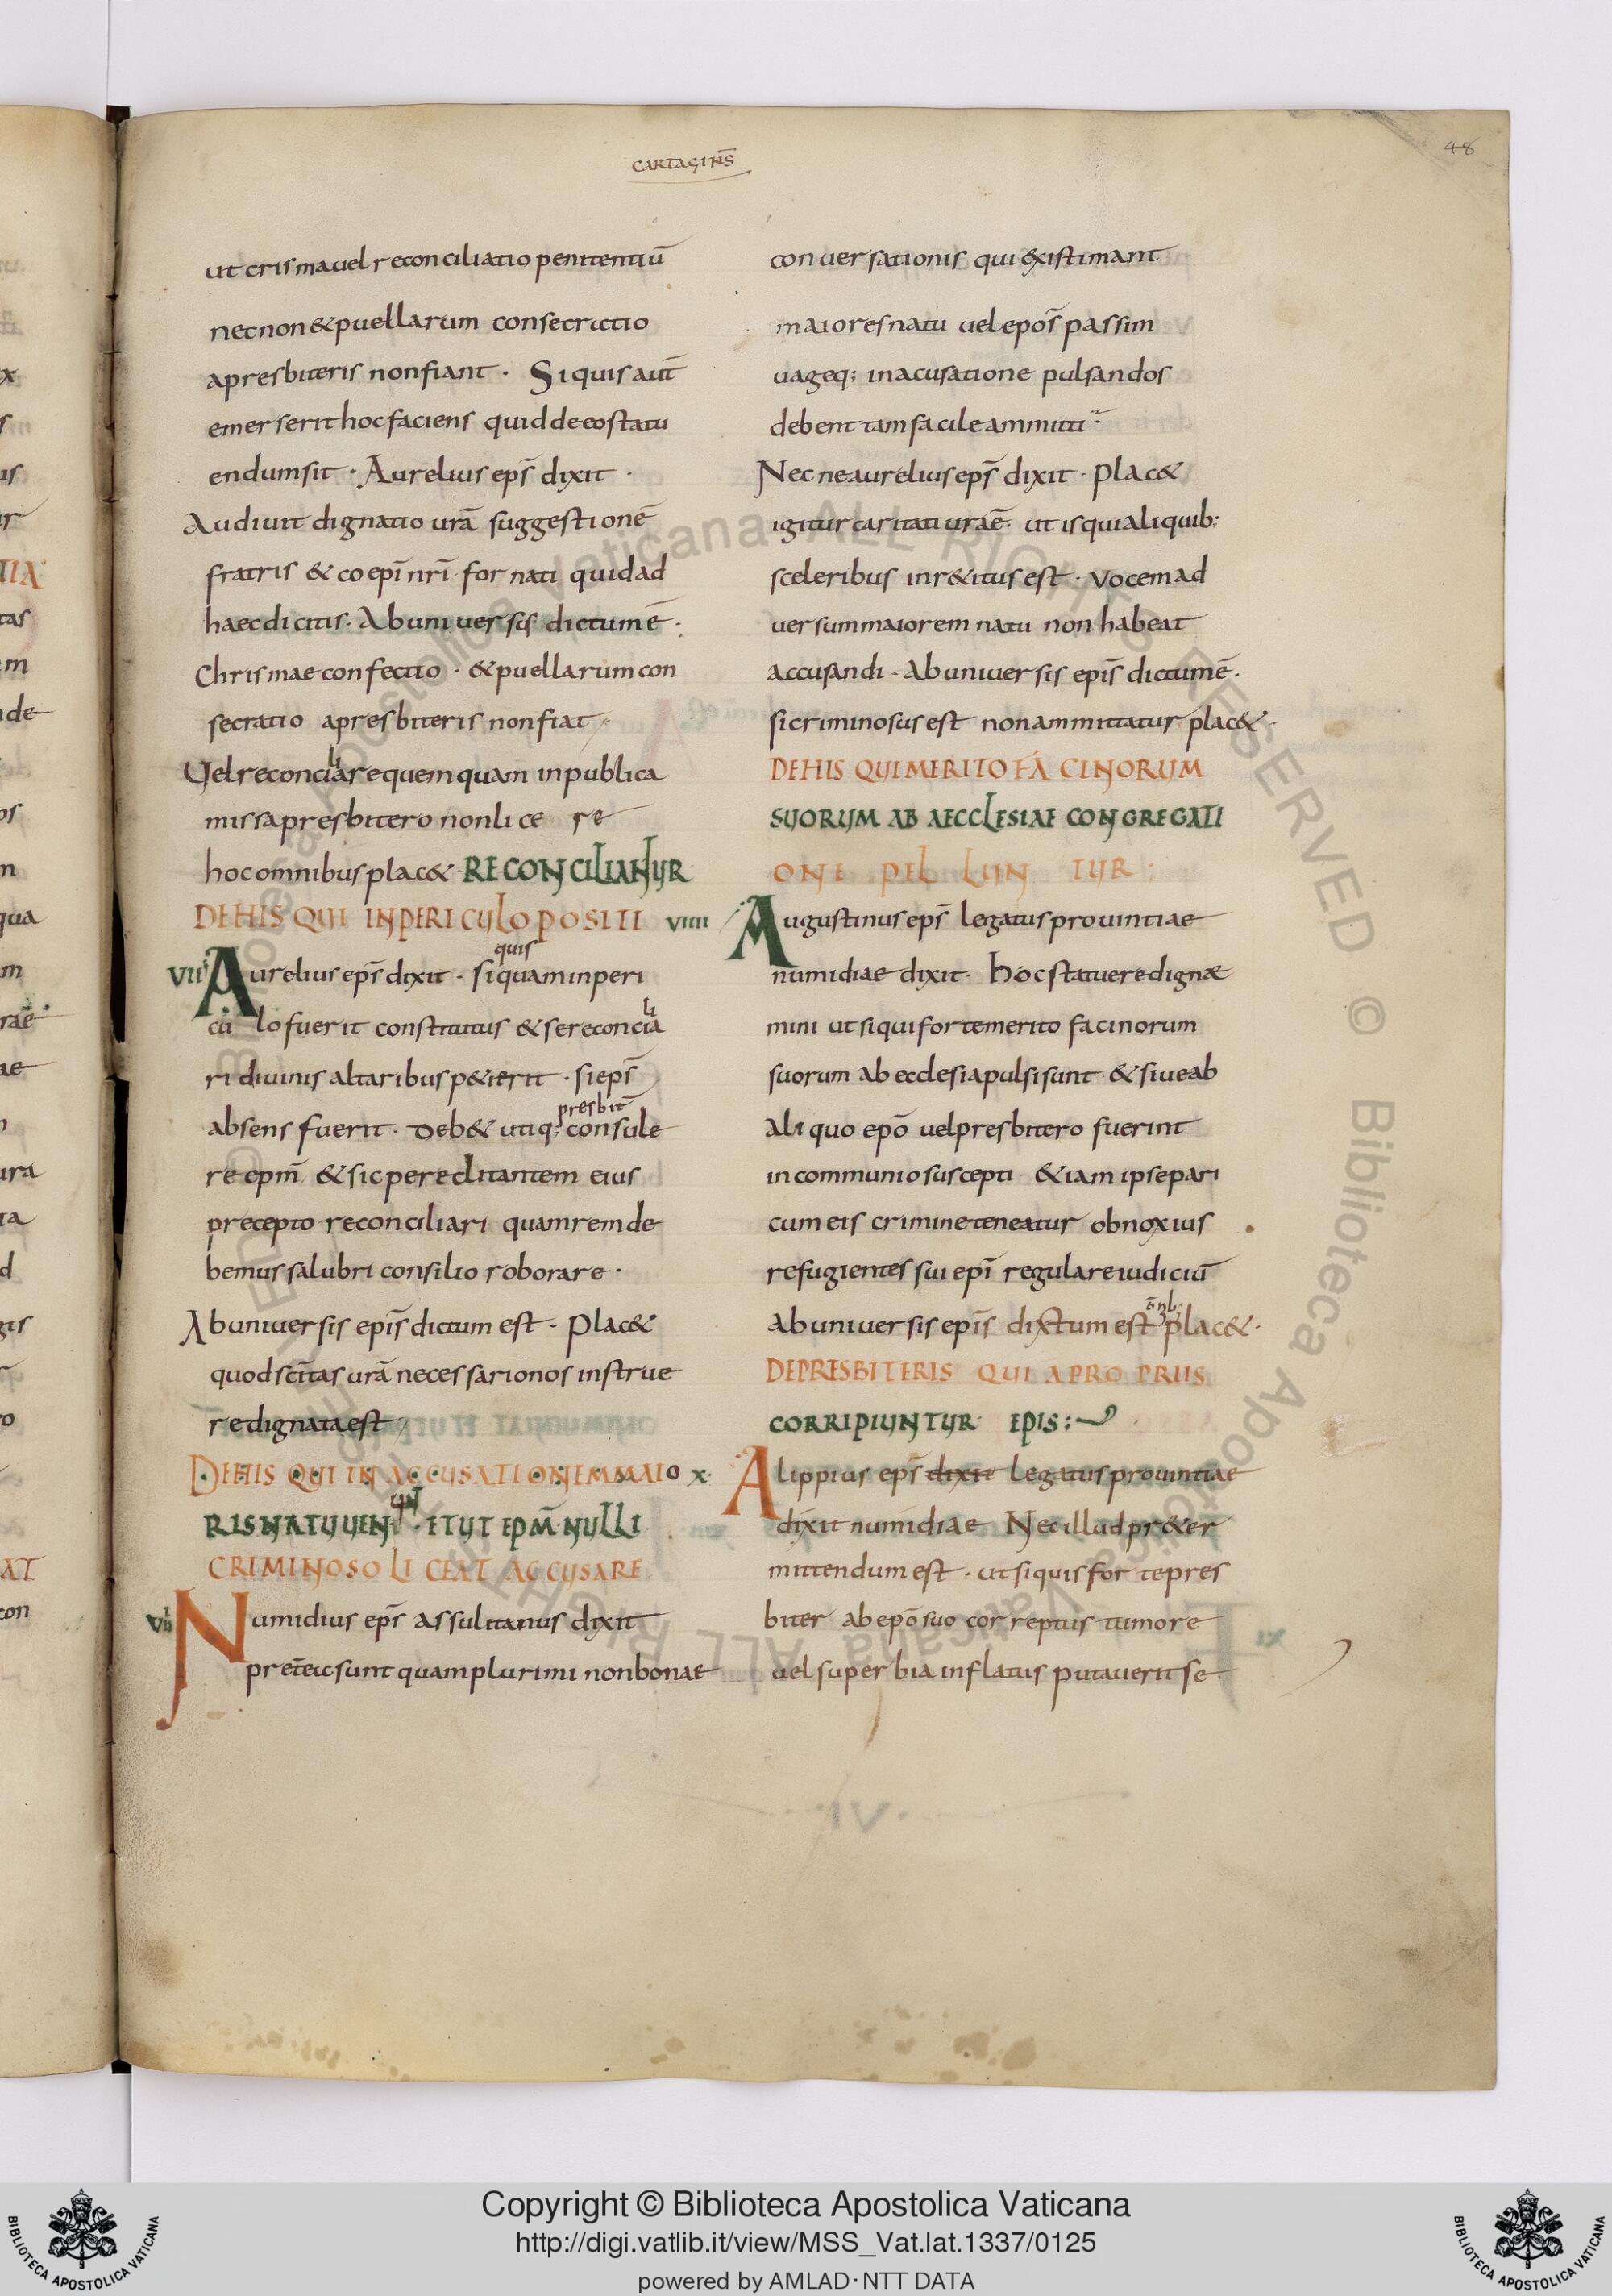 CARTAGIN̄S
48
ut crisma uel reconciliatio penitentiū
necnon & puellarum consecrictio
apresbiteris non fiant · Siquis aut̄
emerserit hoc faciens quid de eo statu
endum sit · Aurelius ep̄s dixit ·
Audiuit dignatio urā suggestionē
fratris & coep̄i nr̄i fornati quid ad
haec dicitis · Ab uniuersis dictum ē ·
Chrismae confectio · & puellarum con
secratio apresbiteris non fiat
Uel reconciliare quemquam inpublica
missa presbitero non lice re
hoc omnibus plac& · RECONCILIANTUR
DEHIS QUI INPERICULO POSITI
VII Aurelius ep̄s dixit · si quis quam inperi
cu lo fuerit constitutus & se reconcilia
ri diuinis altaribus p&ierit · si ep̄s
absens fuerit · deb& utiq; presbit̄ consule
re ep̄m & sic pereclitantem eius
precepto reconciliari quam rem de
bemus salubri consilio roborare ·
Ab uniuersis ep̄is dictum est · Plac&
quod sc̄itas urā necessario nos instrue
re dignata est
DEHIS QUI IN ACCUSATIONEM MAIO
RIS NATU UENIUNT · ET UT EP̄M NULLI
CRIMINOSO LICEAT ACCUSARE
VIII Numidius ep̄s assulitanus dixit
pret̄ea sunt quam plurimi non bonae
conuersationis qui existimant
maiores natu uel epos̄ passim
uageq; inacusatione pulsandos
debent tam facile ammitti
Nec ne aurelius ep̄s dixit · Plac&
igitur caritati uraē · ut is qui aliquib;
sceleribus inr&itus est · vocem ad
uersum maiorem natu non habeat
accusandi · Ab uniuersis ep̄is dictum ē ·
si criminosus est non ammittatur plac& ·
DEHIS QUI MERITO FACINORUM
SUORUM AB AECCLESIAE CONGREGATI
ONE PELLUNTUR ;
VIIII Augustinus ep̄s legatus prouintiae
numidiae dixit · hoc statuere dignæ
mini ut siqui forte merito facinorum
suorum ab ecclesia pulsi sunt & siue ab
aliquo epō uel presbitero fuerint
incommunio suscepti &iam ipse pari
cum eis crimine teneatur obnoxius
refugientes sui epī regulare iudiciū
ab uniuersis ep̄is dixtum est ōnb; plac& ·
DE PRESBITERIS QUI APROPRIIS
CORRIPIUNTUR EPIS :
X Alippius ep̄s dixit legatus prouintiae
dixit numidiae Nec illud pr&er
mittendum est · ut siquis forte pres
biter ab epō suo correptus tumore
uel superbia inflatus putauerit se
IV
Copyright © Biblioteca Apostolica Vaticana
http://digi.vatlib.it/view/MSS_Vat.lat.1337/0125
powered by AMLAD·NTT DATA
BIBLIOTECA APOSTOLICA VATICANA
BIBLIOTECA APOSTOLICA VATICANA